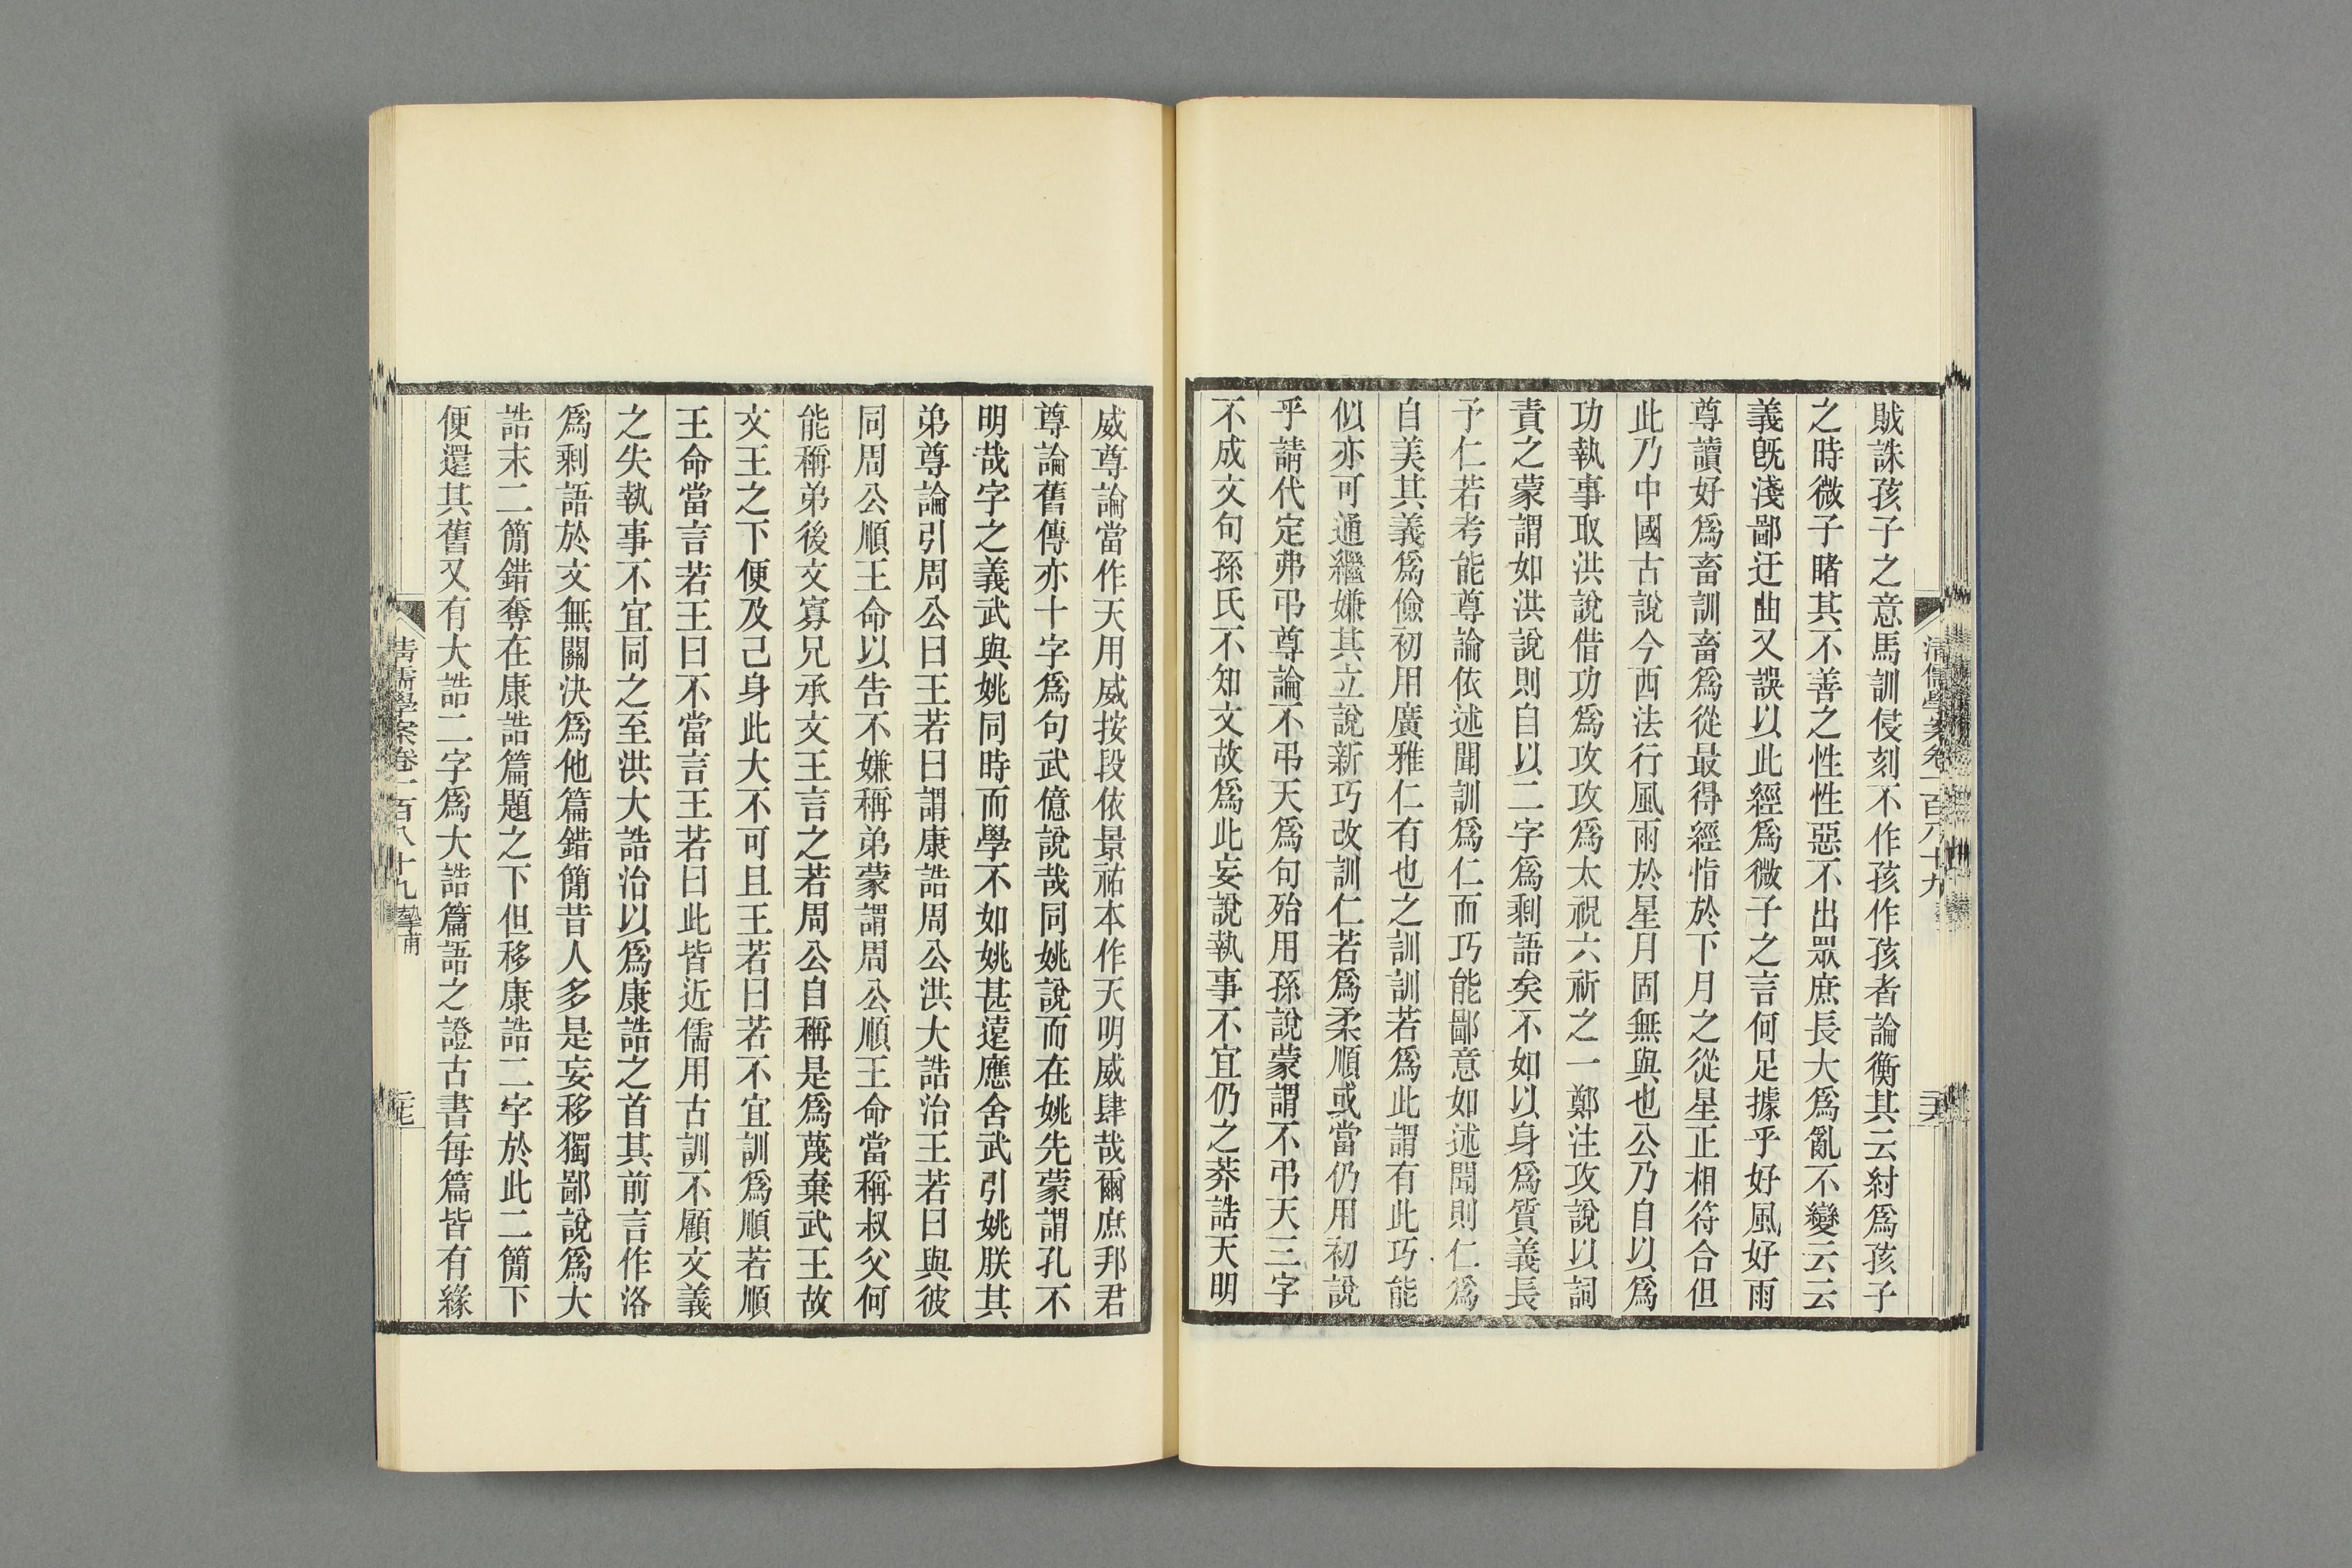 清儒學案卷一百八十九
二六
賊誅孩子之意馬訓侵刻不作孩作孩者論衡其云紂爲孩子
之時微子睹其不善之性性惡不出眾庶長大爲亂不變云云
義旣淺鄙迂曲又誤以此經爲微子之言何足據乎好風好雨
尊讀好爲畜訓畜爲從最得經恉於下月之從星正相符合但
此乃中國古說今西法行風雨於星月固無與也公乃自以爲
功執事取洪說借功爲攻攻爲太祝六祈之一鄭注攻說以詞
責之蒙謂如洪說則自以二字爲剩語矣不如以身爲質義長
予仁若考能尊論依述聞訓爲仁而巧能鄙意如述聞則仁爲
自美其義爲儉初用廣雅仁有也之訓訓若爲此謂有此巧能
似亦可通繼嫌其立說新巧改訓仁若爲柔順或當仍用初說
乎請代定弗弔尊論不弔天爲句殆用孫說蒙謂不弔天三字
不成文句孫氏不知文故爲此妄說執事不宜仍之莽誥天明
威尊論當作天用威按段依景祐本作天明威肆哉爾庶邦君
尊論舊傳亦十字爲句武億說哉同姚說而在姚先蒙謂孔不
明哉字之義武與姚同時而學不如姚甚遠應舍武引姚朕其
弟尊論引周公曰王若曰謂康誥周公洪大誥治王若曰與彼
同周公順王命以告不嫌稱弟蒙謂周公順王命當稱叔父何
能稱弟後文寡兄承文王言之若周公自稱是爲蔑棄武王故
文王之下便及己身此大不可且王若曰若不宜訓爲順若順
王命當言若王曰不當言王若曰此皆近儒用古訓不顧文義
之失執事不宜同之至洪大誥治以爲康誥之首其前言作洛
爲剩語於文無關決爲他篇錯簡昔人多是妄移獨鄙說爲大
誥末二簡錯奪在康誥篇題之下但移康誥二字於此二簡下
便還其舊又有大誥二字爲大誥篇語之證古書每篇皆有緣
清儒學案卷一百八十九 摯甫
二七